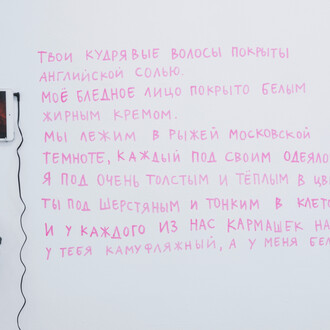 ТВОИ КУДРЯВЫЕ ВОЛОСЫ ПОКРЫТЫ
АНГЛИЙСКОЙ СОЛЬЮ.
МОЁ БЛЕДНОЕ ЛИЦО ПОКРЫТО БЕЛЫМ
ЖИРНЫМ КРЕМОМ.
МЫ ЛЕЖИМ В РЫЖЕЙ МОСКОВСКОЙ
ТЕМНОТЕ, КАЖДЫЙ ПОД СВОИМ ОДЕЯЛО
Я ПОД ОЧЕНЬ ТОЛСТЫМ И ТЁПЛЫМ В ЦВ
ТЫ ПОД ШЕРСТЯНЫМ И ТОНКИМ В КЛЕТО
И У КАЖДОГО ИЗ НАС КАРМАШЕК НА
У ТЕБЯ КАМУФЛЯЖНЫЙ, А У МЕНЯ БЕЛ